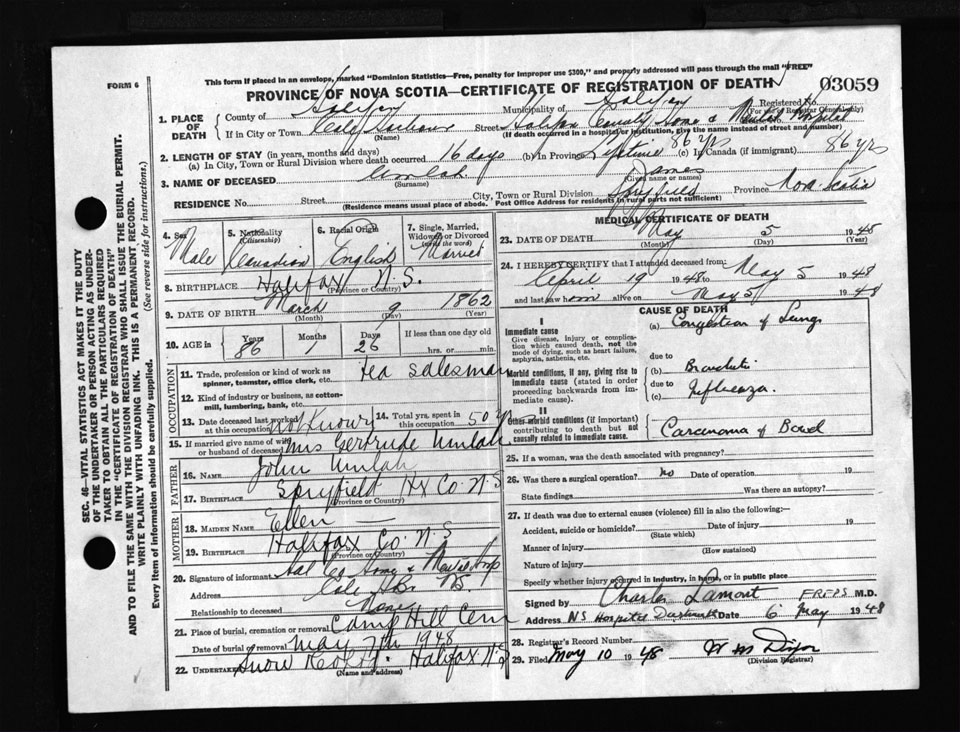 This form if placed in an envelope, marked "Dominion Statistics—Free, penalty for improper use $300," and properly addressed will pass through the mail "FREE"
FORM 6
PROVINCE OF NOVA SCOTIA—CERTIFICATE OF REGISTRATION OF DEATH
03059
Registered No.
(For use of Registrar General only)
1. PLACE OF DEATH
County of Halifax Municipality of Halifax
If in City or Town Cole Harbour Street Halifax County Home & Mental Hospital
(Name) (If death occurred in a hospital or institution, give the name instead of street and number)
2. LENGTH OF STAY (in years, months and days)
(a) In City, Town or Rural Division where death occurred 16 days (b) in Province Lifetime 86 yrs (c) In Canada (if immigrant) 86 yrs
3. NAME OF DECEASED Umlah James
(Surname) (Given name or names)
RESIDENCE No. Street City, Town or Rural Division Spryfield Province Nova Scotia
(Residence means usual place of abode. Post Office Address for residents in rural parts not sufficient)
4. Sex Male
5. Nationality (Citizenship) Canadian
6. Racial Origin English
7. Single, Married, Widowed or Divorced (write the word) Married
8. BIRTHPLACE Halifax N.S.
(Province or Country)
9. DATE OF BIRTH March 9 1862
(Month) (Day) (Year)
10. AGE in Years 86 Months 1 Days 26 If less than one day old hrs. or min.
OCCUPATION
11. Trade, profession or kind of work as spinner, teamster, office clerk, etc. Tea salesman
12. Kind of industry or business, as cotton-mill, lumbering, bank, etc.
13. Date deceased last worked at this occupation Not Known 14. Total yrs. spent in this occupation 50 yrs
15. If married give name of wife or husband of deceased Mrs Gertrude Umlah
FATHER
16. NAME John Umlah
17. BIRTHPLACE Spryfield Hx Co. N.S
(Province or Country)
MOTHER
18. MAIDEN NAME Ellen —
19. BIRTHPLACE Halifax Co. N.S
(Province or Country)
20. Signature of informant Hal Co Home & Mental Hosp
Address Cole Hbr. N.S.
Relationship to deceased None
21. Place of burial, cremation or removal Camp Hill Cem
Date of burial or removal May 7th 1948
22. Undertaker Snow & Co Halifax N.S
(Name and address)
MEDICAL CERTIFICATE OF DEATH
23. DATE OF DEATH May 5 1948
(Month) (Day) (Year)
24. I HEREBY CERTIFY that I attended deceased from:
April 19 1948 to May 5 1948
and last saw him alive on May 5 1948
CAUSE OF DEATH
I
Immediate cause
Give disease, injury or complication which caused death, not the mode of dying, such as heart failure, asphyxia, asthenia, etc.
(a) Congestion of Lungs
due to
Morbid conditions, if any, giving rise to immediate cause (stated in order proceeding backwards from immediate cause).
(b) Bronchitis
due to
(c) Influenza.
II
Other morbid conditions (if important) contributing to death but not causally related to immediate cause.
Carcinoma of Bowel
25. If a woman, was the death associated with pregnancy?
26. Was there a surgical operation? no Date of operation 19
State findings Was there an autopsy?
27. If death was due to external causes (violence) fill in also the following:—
Accident, suicide or homicide? Date of injury 19
(State which)
Manner of injury
(How sustained)
Nature of injury
Specify whether injury occurred in industry, in home, or in public place
Signed by Charles Lamont FRFPS M.D.
Address N S Hospital Dartmouth Date 6 May 1948
28. Registrar's Record Number
29. Filed May 10 1948 W M Dixon
(Division Registrar)
SEC. 46—VITAL STATISTICS ACT MAKES IT THE DUTY OF THE UNDERTAKER OR PERSON ACTING AS UNDERTAKER TO OBTAIN ALL THE PARTICULARS REQUIRED IN THE "CERTIFICATE OF REGISTRATION OF DEATH" AND TO FILE THE SAME WITH THE DIVISION REGISTRAR WHO SHALL ISSUE THE BURIAL PERMIT.
WRITE PLAINLY WITH UNFADING INK. THIS IS A PERMANENT RECORD.
Every item of information should be carefully supplied. (See reverse side for instructions.)